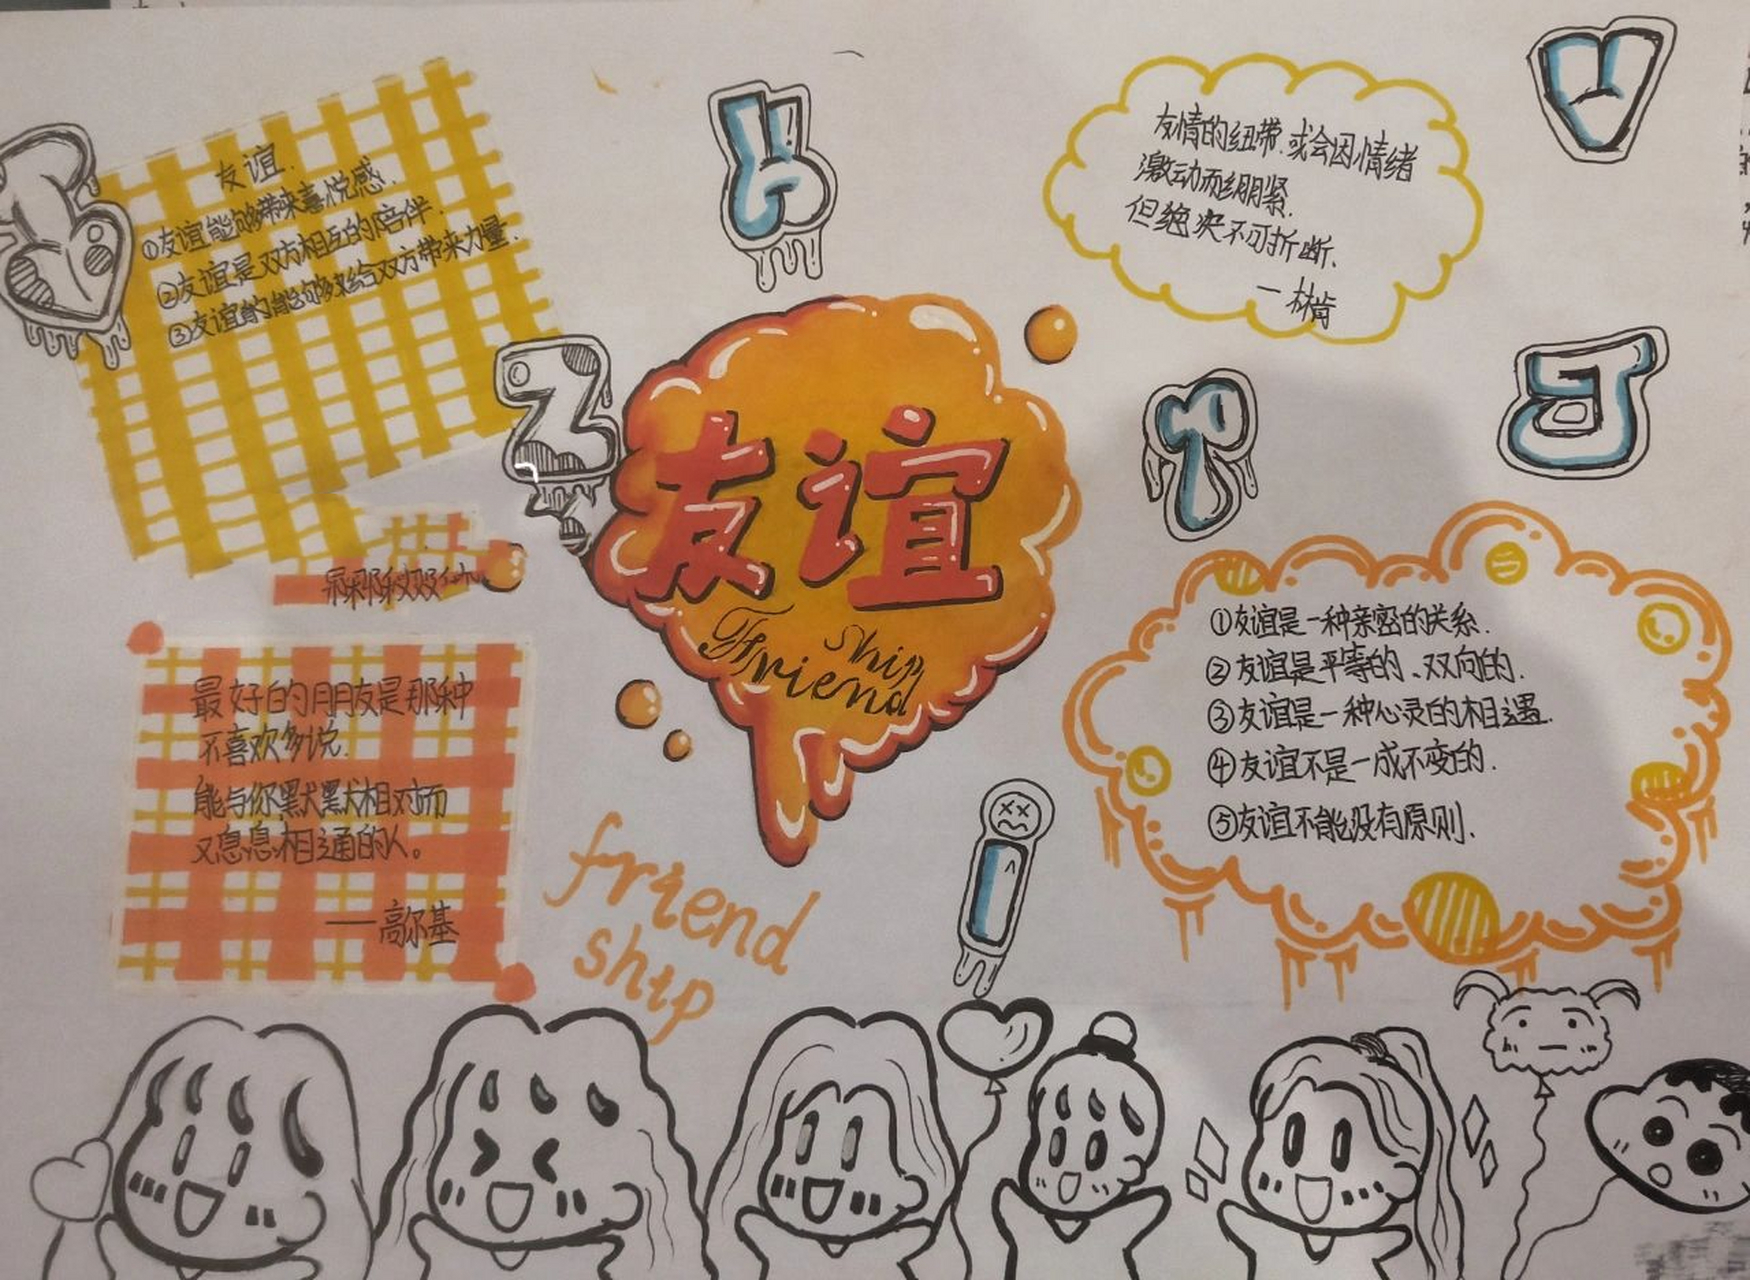 友谊.
①友谊能够带来喜悦感.
②友谊是双方相互的陪伴.
③友谊的能够来给双方带来力量.
友情的纽带.或会因情绪
激动而绷紧.
但绝决不可折断.
—林肯
友谊
Friend
ship
①友谊是一种亲密的关系.
②友谊是平等的、双向的.
③友谊是一种心灵的相遇.
④友谊不是一成不变的.
⑤友谊不能没有原则.
最好的朋友是那种
不喜欢多说.
能与你默默相对而
又息息相通的人。
——高尔基
friend
ship